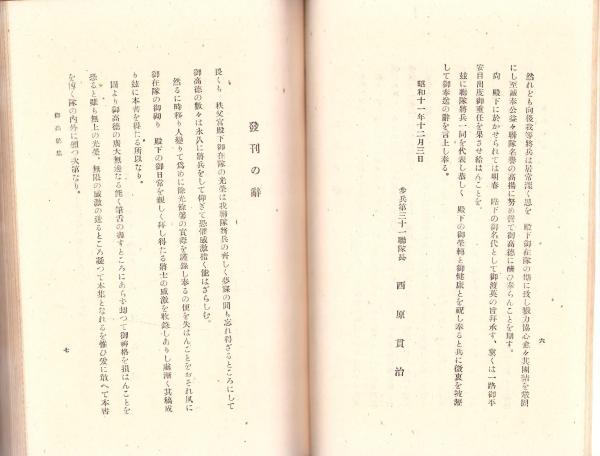 然れども向後我等將兵は居常深く思を　殿下御在隊の期に致し戮力協心愈々其團結を鞏固
にし至誠奉公益々聯隊名譽の高揚に努め誓て御高德に酬ひ奉らんことを期す。
尙　殿下に於かせられては明春　陛下の御名代として御渡英の旨拜承す、冀くは一路御平
安目出度御重任を果させ給はんことを。
茲に聯隊將兵一同を代表し恭しく　殿下の御榮轉と御健康とを祝し奉ると共に微衷を披瀝
して御奉送の辭を言上し奉る。
昭和十一年十二月三日
步兵第三十一聯隊長　西原貫治
六
發刊の辭
畏くも　秩父宮殿下御在隊の光榮は我聯隊將兵の齊しく夢寐の間も忘れ得ざるところにして
御高德の數々は永久に將兵をして仰ぎて恐懼感激措く能はざらしむ。
然るに時移り人變りて爲めに餘光餘馨の實毒を謹錄し奉るの便を失はんことをおそれ夙に
御在隊の御砌り　殿下の御日常を親しく拜し得たる將士の感激を收錄しありし處漸く其稿成
り茲に本書を得たる所以なり。
固より御高德の廣大無邊なる能く筆舌の盡すところにあらず却つて御神格を損はんことを
恐ると雖も無上の光榮、無限の感激の迸るところ凝つて本集となれるを惟ひ爰に敢へて本書
を博く隊の內外に頒つ次第なり。
御高德集
七